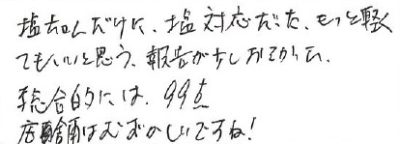 塩なんだけに、塩対応だった、もっと軽く
てもいいと思う、報告が少しおそかった、
総合的には、99点
店舗はむずかしいですね!